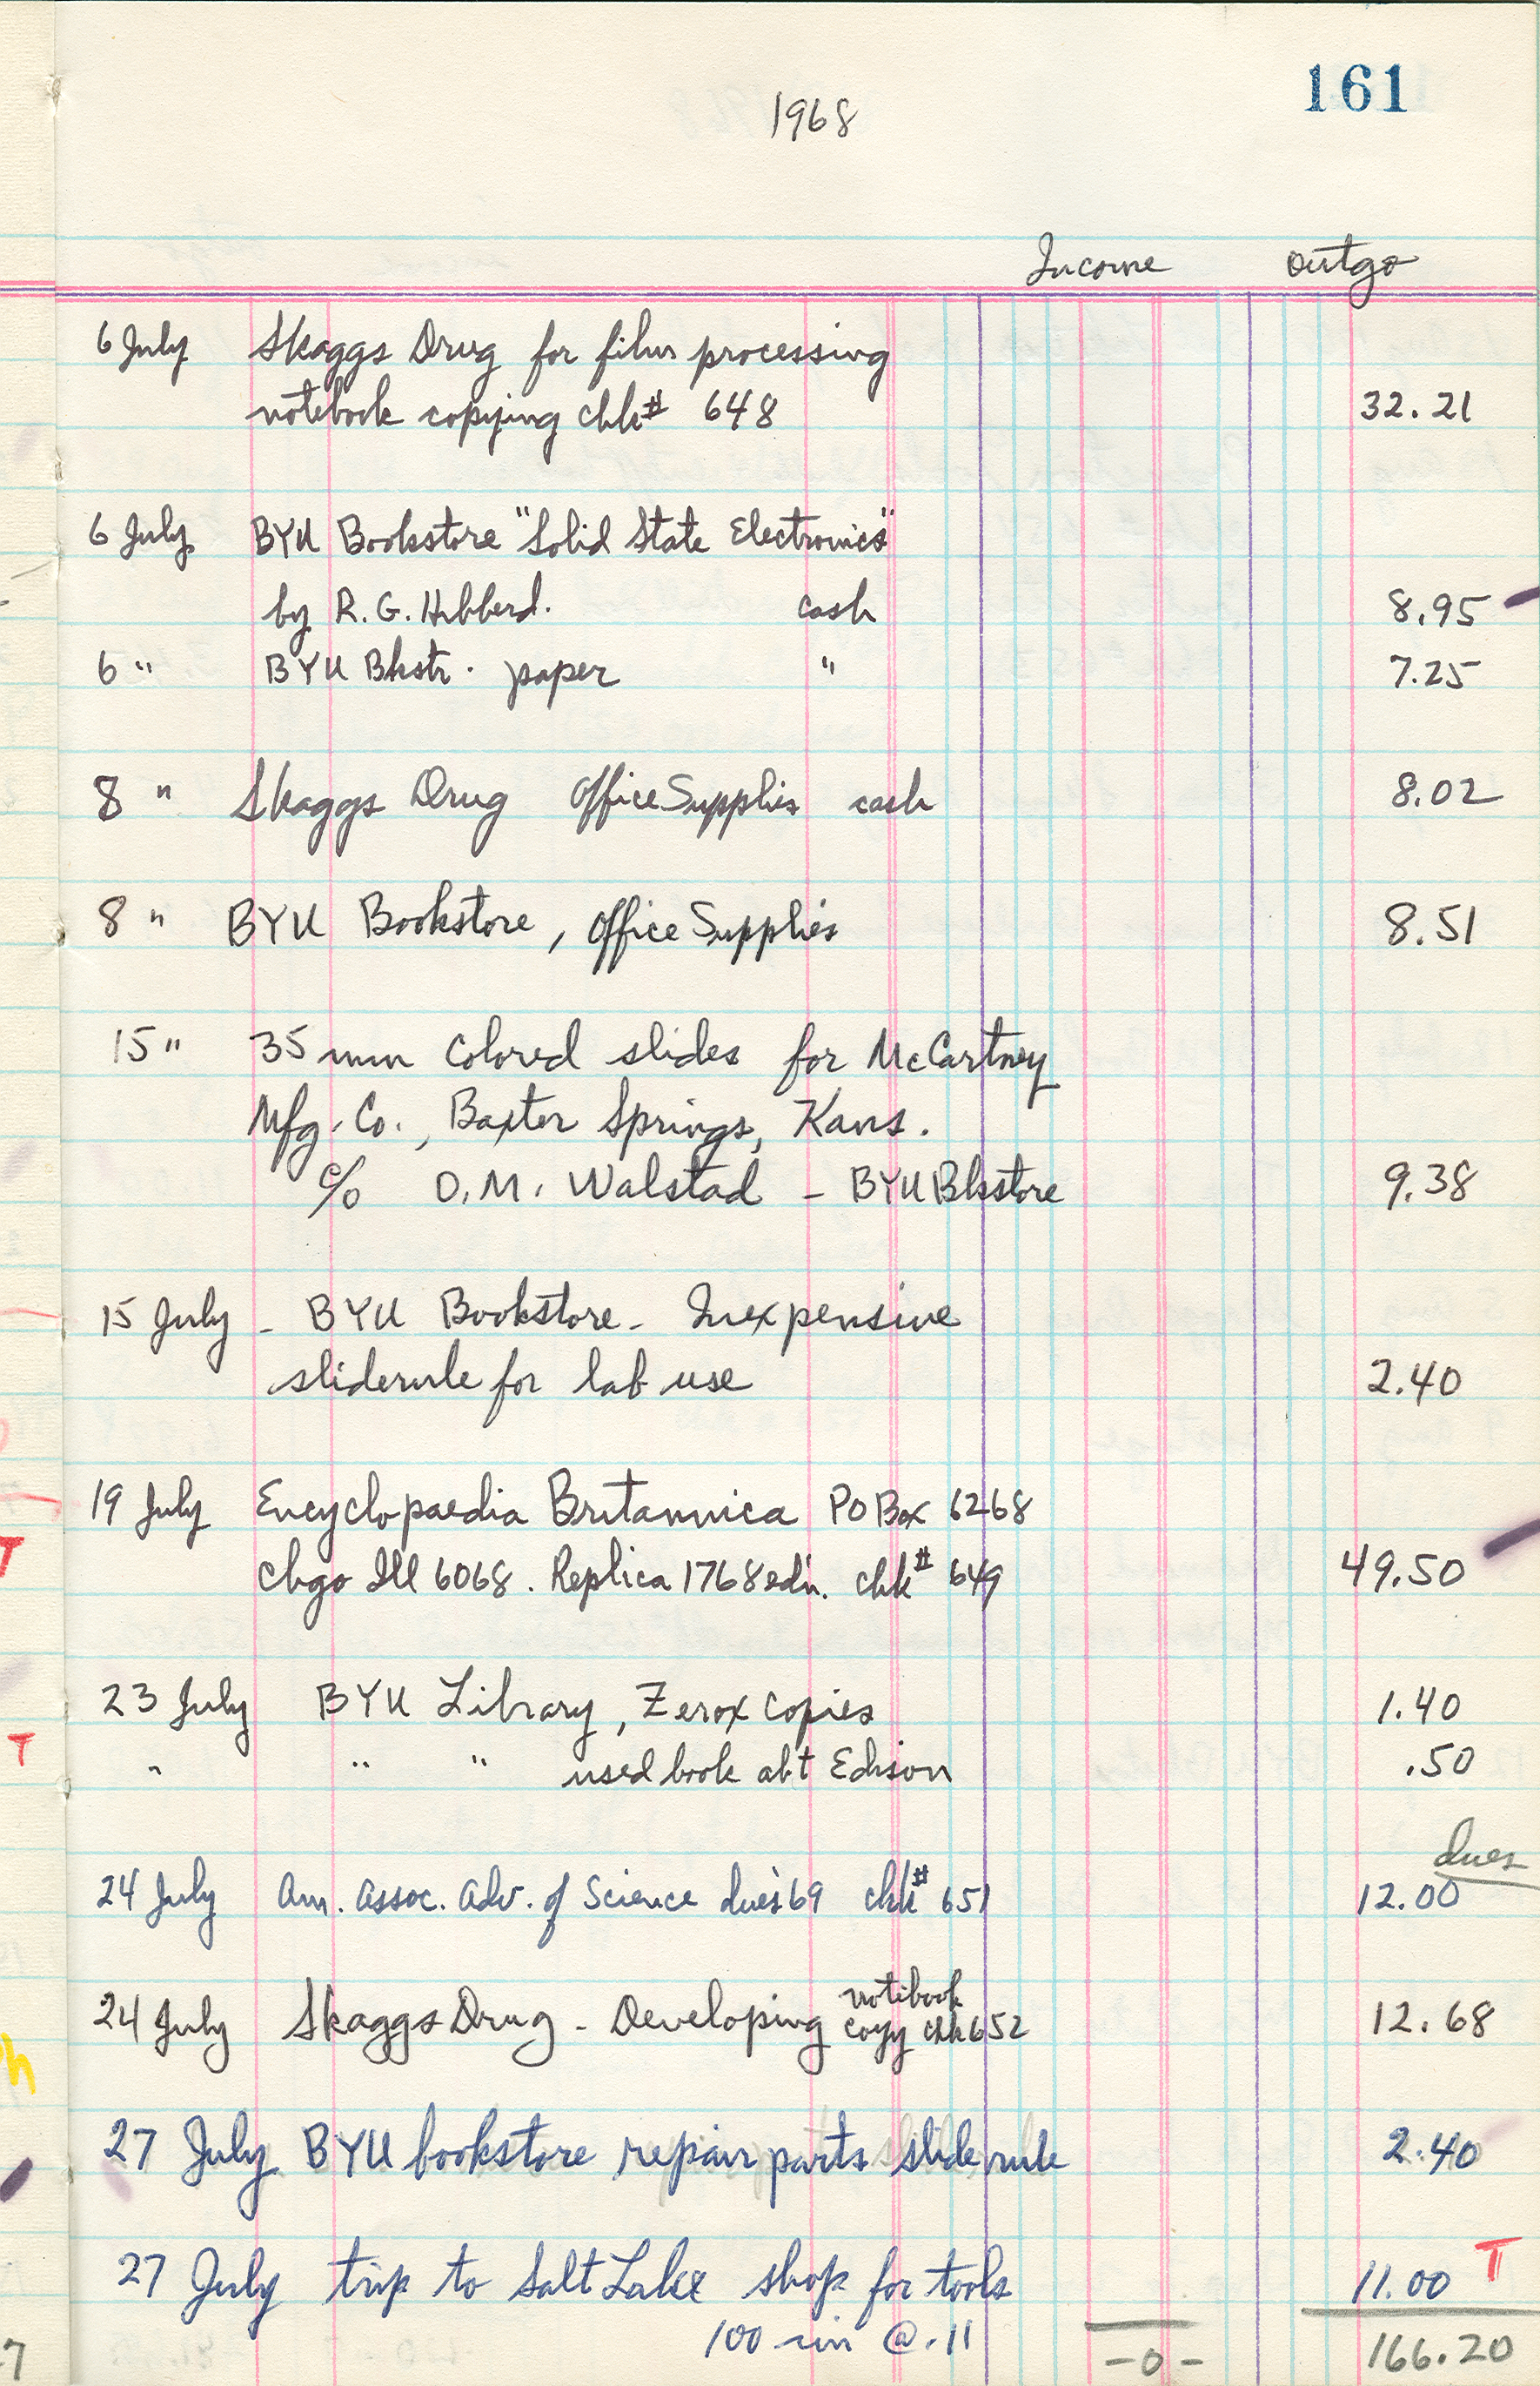 161
1968
Income outgo
6 July Skaggs Drug for film processing
notebook copying chk# 648 32.21
6 July BYU Bookstore "Solid State Electronics"
by R. G. Hibberd. cash 8.95
6 " BYU Bkstr. paper " 7.25
8 " Skaggs Drug Office Supplies cash 8.02
8 " BYU Bookstore, Office Supplies 8.51
15 " 35 mm colored slides for McCartney
Mfg. Co., Baxter Springs, Kans.
c/o O.M. Walstad - BYU Bkstore 9.38
15 July - BYU Bookstore - Inexpensive
sliderule for lab use 2.40
19 July Encyclopaedia Britannica PO Box 6268
Chgo Ill 6068. Replica 1768 edn. chk# 649 49.50
T
23 July BYU Library, Zerox copies 1.40
T
" " " used book abt Edison .50
dues
24 July Am. Assoc. Adv. of Science dues '69 chk# 651 12.00
notebook
24 July Skaggs Drug - Developing copy chk 652 12.68
27 July BYU bookstore repair parts slide rule 2.40
27 July trip to Salt Lake shop for tools 11.00 T
100 mi @ .11
-0- 166.20
7